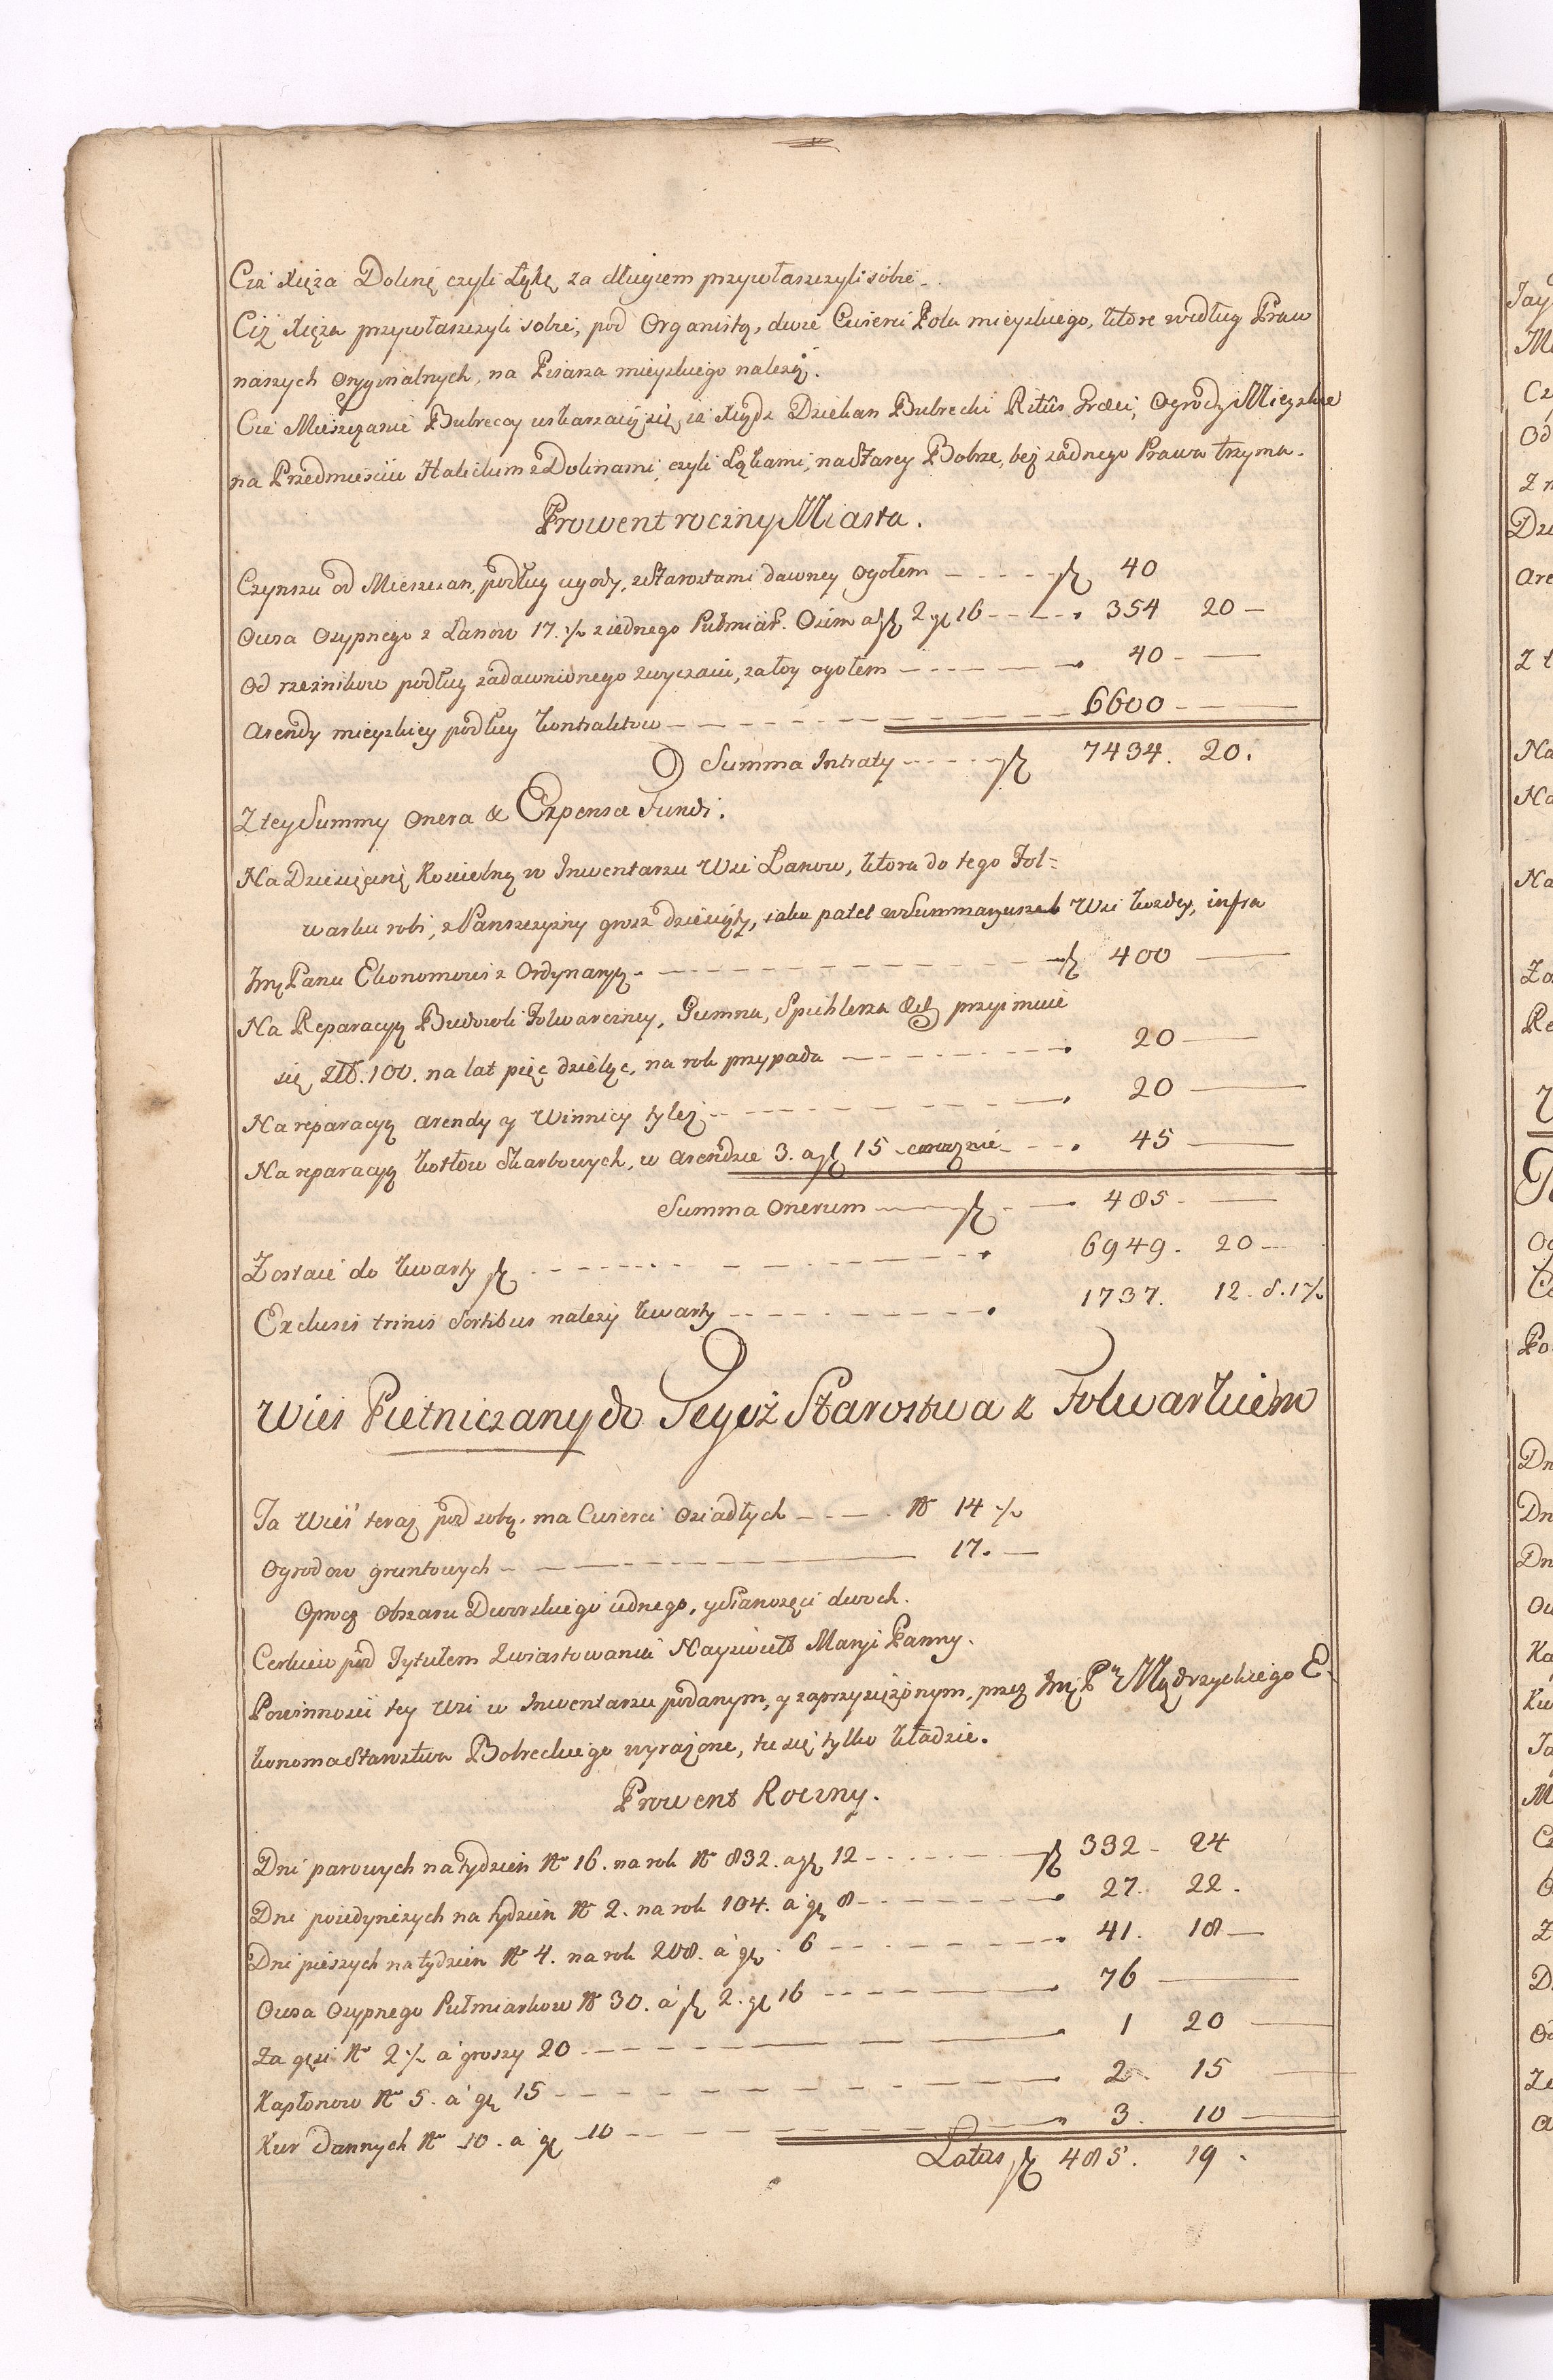 Ciż Xięża Dolinę czyli Łąkę za długiem przywłaszczyli sobie.
Ciż Xięża przywłaszczyli sobie, pod Organistą, dwie Cwierci Pola mieyskiego, które według Praw
naszych Oryginalnych, na Pisarza mieyskiego należą.
Ciż Mieszczanie Bubreccy uskarzaią się, iż Xiądz Dziekan Bubrecki Ritus Græci, Ogrody Mieyskie
na Przedmieściu Halickim z Dolinami, czyli Łąkami, na Starey Bobrze, bez żadnego Prawa trzyma.
Prowent roczny Miasta.
Czynszu od Mieszczan, podług ugody, z Starostami dawney ogołem fl 40
Owsa Osypnego z Łanow 17. ½ z iednego Pułmiar. Ośim a fl 2 gl 16 354 20
Od rzeźnikow podług zadawnionego zwyczaiu, za łoy ogołem 40
Arendy mieyskiey podług kontraktow 6600
Summa Intraty fl 7434. 20.
Z tey Summy Onera & Expensa Fundi.
Na Dziesięcinę Koscielną w Inwentarzu Wsi Łanow, która do tego Fol=
warku robi, z Panszczyzny grosz dziesiąty, iako patet w Summaryuszach Wsi każdey, infra
Imę Panu Ekonomowi z Ordynaryą fl 400
Na Reparacyą Budowli Folwarczney, Gumna, Spichlerza &c przyimuie
się Złł. 100. na lat pięć dzieląc, na rok przypada 20
Na reparacyą arendy y Winnicy tyleż 20
Na reparacyą kotłow Skarbowych, w arendzie 3. a fl 15 corocznie 45
Summa Onerum fl 485
Zostaie do kwarty fl 6949. 20
Exclusis trinis Sortibus należy kwarty 1737. 12. d. 1½
Wieś Pietniczany do Tegoż Starostwa z Folwarkiem
Ta Wieś teraz pod sobą ma Cwierci Osiadłych N 14 ½
Ogrodow gruntowych 17.
Oprocz Obszaru Dworskiego iednego, y Sianożęci dwoch.
Cerkiew pod Tytułem Zwiastowania Nayświętt Maryi Panny.
Powinności tey Wsi w Inwentarzu podanym, y zaprzysiężonym, przez Imę Pa Mądrzyckiego E-
konoma Starostwa Bobreckiego wyrażone, tu się tylko kładzie.
Prowent Roczny.
Dni parowych na tydzień N 16. na rok N 832. a gl 12 fl 332 24
Dni poiedynczych na tydzień N 2. na rok 104. a gl 8 27. 22.
Dni pieszych na tydzień N 4. na rok 208. a gl. 6 41. 18
Owsa Osypnego Pułmiarkow N 30. a fl 2. gl 16 76
Za gęsi N 2 ½ a groszy 20 1 20
Kapłonow N 5. a gl 15 2 15
Kur Dannych N 10. a gl 10 3. 10
Latus fl 485. 19.